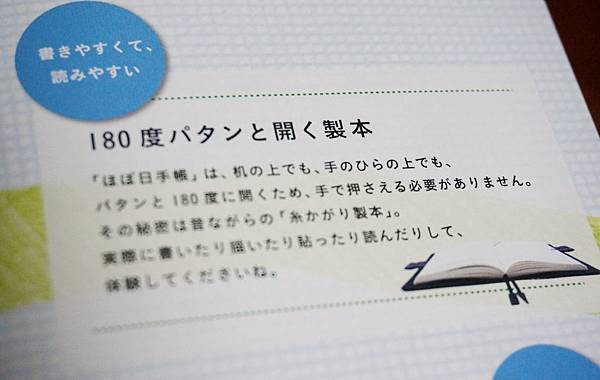 書きやすくて、
読みやすい
180度パタンと開く製本
「ほぼ日手帳」は、机の上でも、手のひらの上でも、
パタンと180度に開くため、手で押さえる必要がありません。
その秘密は昔ながらの「糸かがり製本」。
実際に書いたり描いたり貼ったり読んだりして、
体験してくださいね。